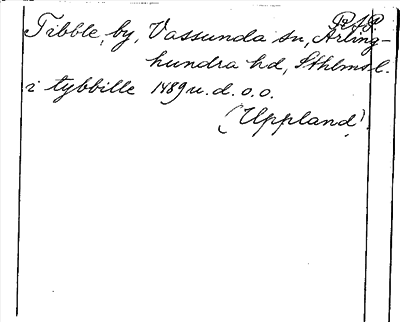 R.A.P.
Tibble, by, Vassunda sn, Arling-
hundra hd, Sthlms l.
i tybbille 1489 u.d. o.o.
(Uppland).